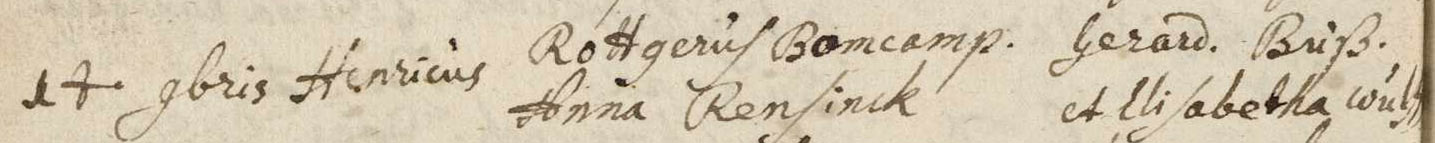 Rottgerus Bomcamp. Gerard. Buß.
9bris Henricus
Anna Rensinck et Elisabetha